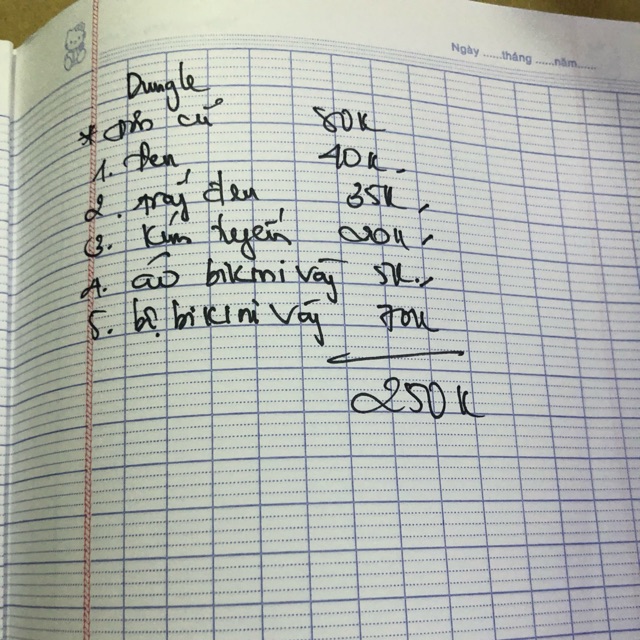 Ngày ......tháng ......năm......
Dungle
* cũ 80K
1. Đen 40K.
2. đen 35K,
3. Kim tuyến 20K,
4. áo bikini váy 5K.,
5. bộ bikini váy 70K
250K